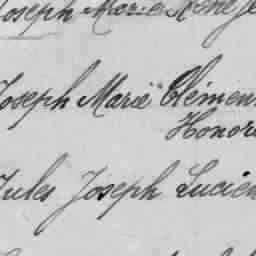 Joseph Marie René Je
Joseph Marie Clémen
Honoré
Jules Joseph Lucien